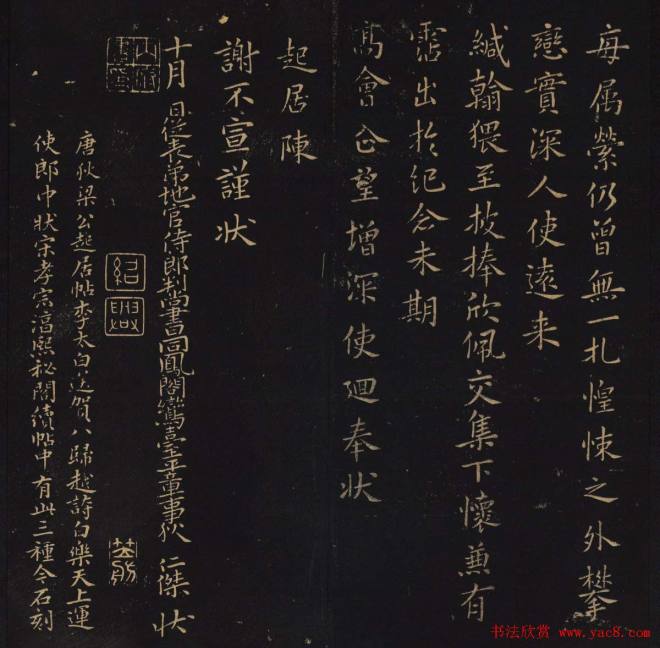 每属縈仍曾無一札惶悚之外攀
戀實深人使遠来
緘翰猥至披捧欣佩交集下懷兼有
霑出於紀念未期
髙會企望增深使廻奉状
起居陳
謝不宣謹状
十月 日從表弟地官侍郎判尚書同鳳閣鸞臺平章事狄 仁傑状
紹興
唐狄梁公起居帖李太白送賀八歸越詩白樂天上運
使郎中状宋孝宗淳熙秘閣續帖中有此三種今石刻
书法欣赏 www.yac8.com